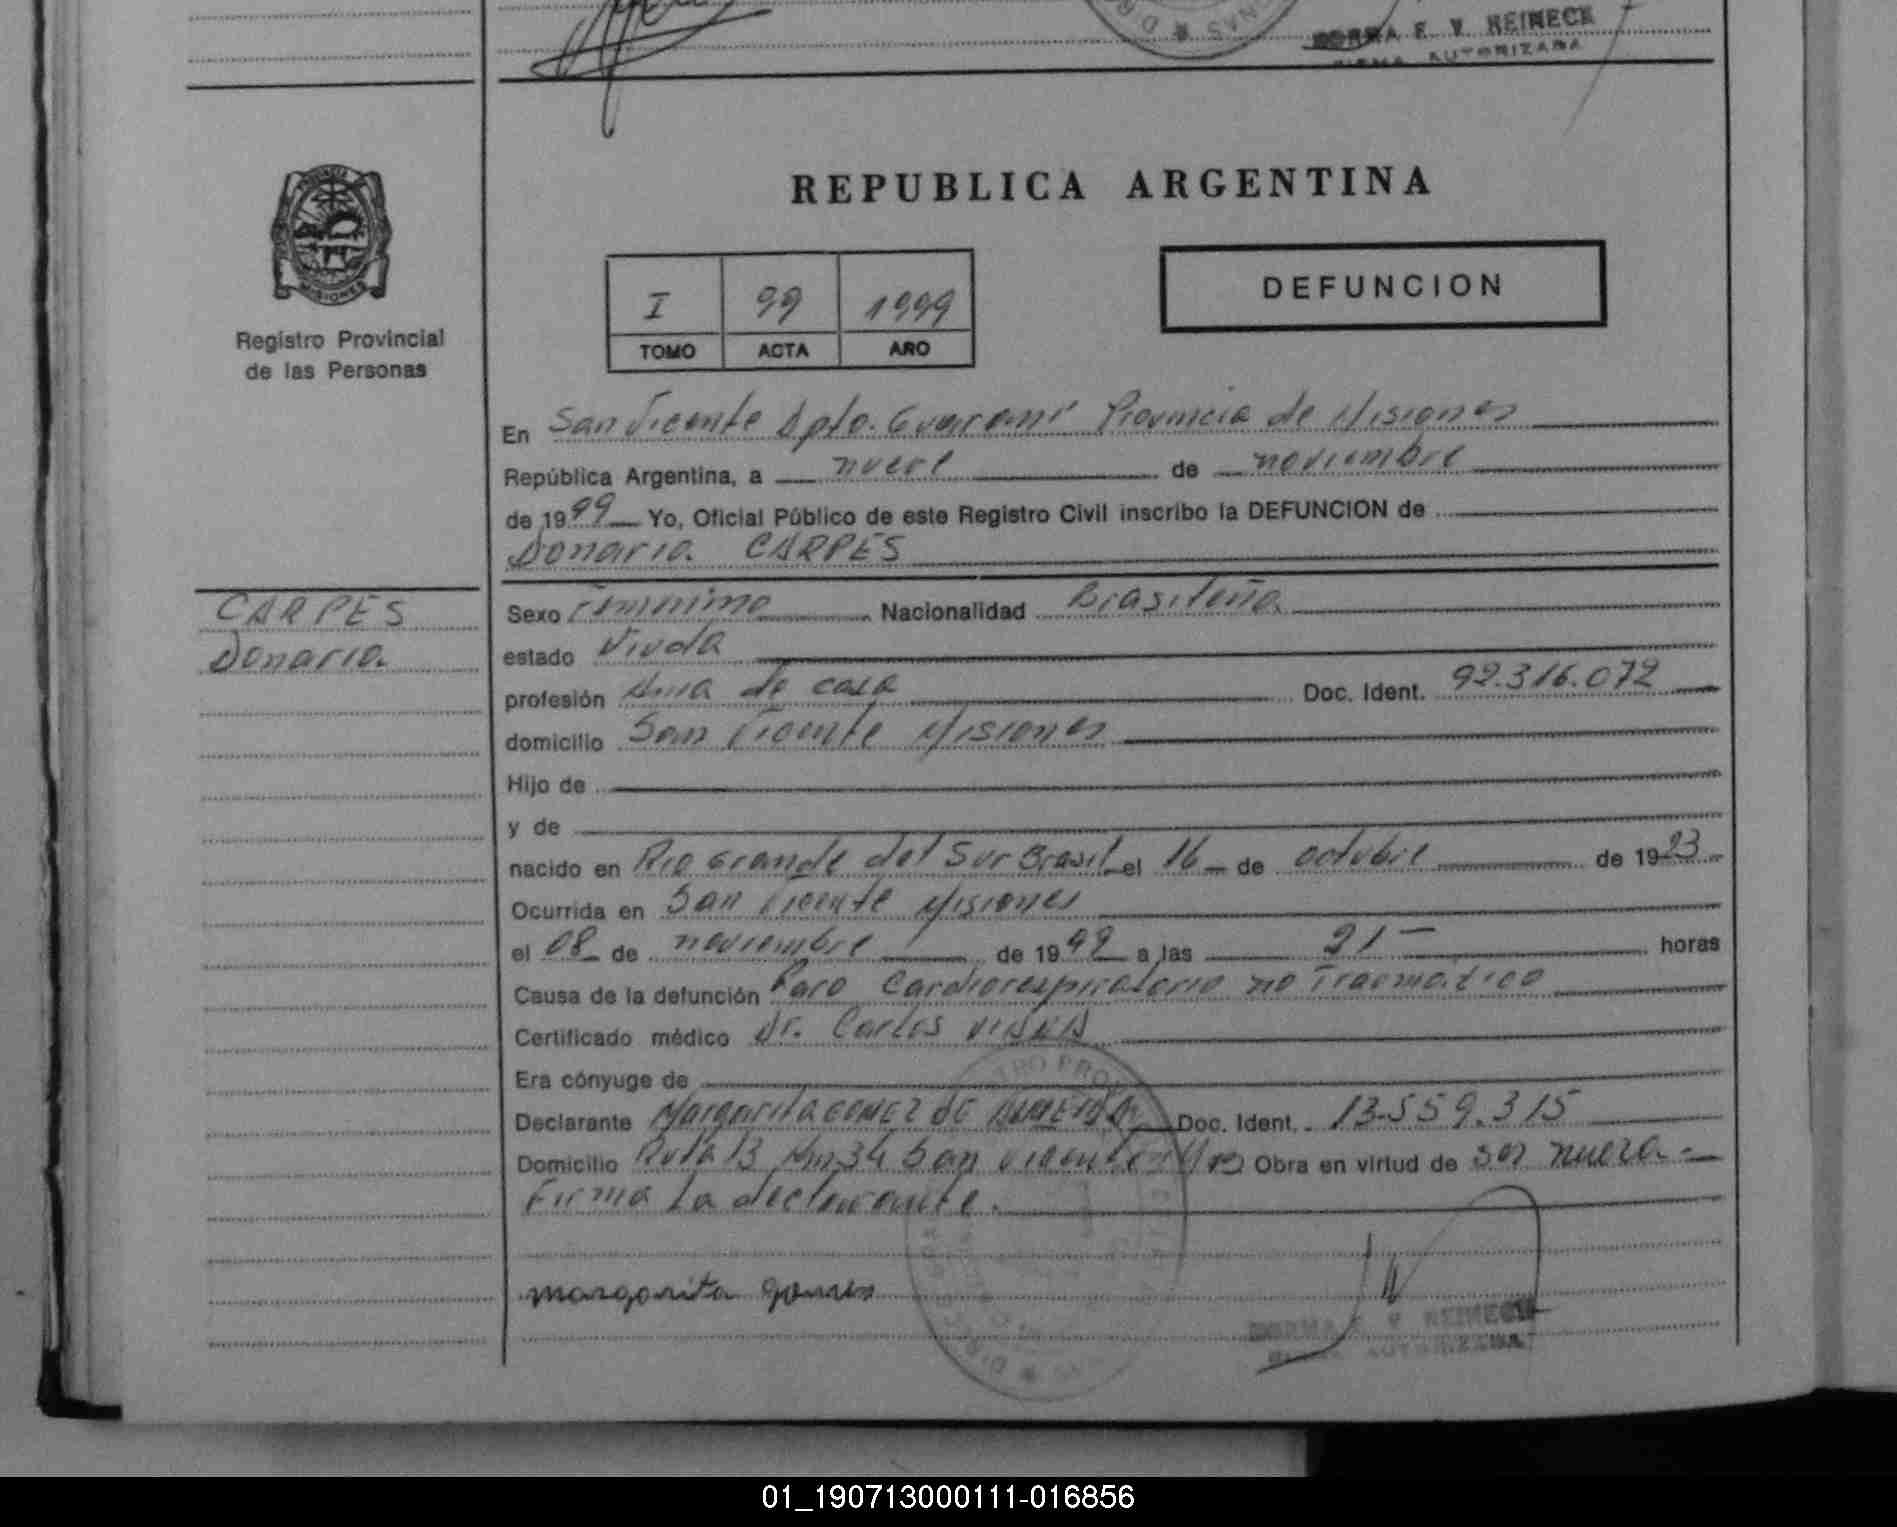 NORMA F. V. REINECK
FIRMA AUTORIZADA
REPUBLICA ARGENTINA
PROVINCIA
MISIONES
Registro Provincial
de las Personas
I 99 1999
TOMO ACTA AÑO
DEFUNCION
En San Vicente Dpto. Guaraní Provincia de Misiones
República Argentina, a nueve de noviembre
de 1999 Yo, Oficial Público de este Registro Civil inscribo la DEFUNCION de
Donaria CARPES
CARPES
Donaria
Sexo Femenino Nacionalidad Brasileña
estado Viuda
profesión Ama de casa Doc. Ident. 92.316.072
domicilio San Vicente Misiones
Hijo de
y de
nacido en Rio Grande del Sur Brasil el 16 de octubre de 1923
Ocurrida en San Vicente Misiones
el 08 de noviembre de 1999 a las 21 horas
Causa de la defunción Paro Cardiorespiratorio no Traumatico
Certificado médico Dr. Carlos
Era cónyuge de
Declarante Margarita GOMEZ DE ALMEIDA Doc. Ident. 13.559.315
Domicilio Ruta 13 Km 34 San Vicente Mnes Obra en virtud de ser nuera.-
Firma la declarante.
margarita gomes
NORMA F. V. REINECK
FIRMA AUTORIZADA
01_190713000111-016856